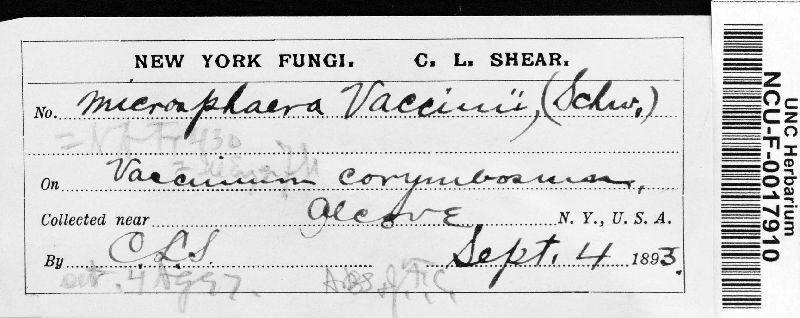 NEW YORK FUNGI. C. L. SHEAR.
No. Microsphaera Vaccinii, (Schw.)
On Vaccinium corymbosum,
Collected near Alcove N. Y., U. S. A.
By C.L.S. Sept. 4 1893.
UNC Herbarium
NCU-F-0017910